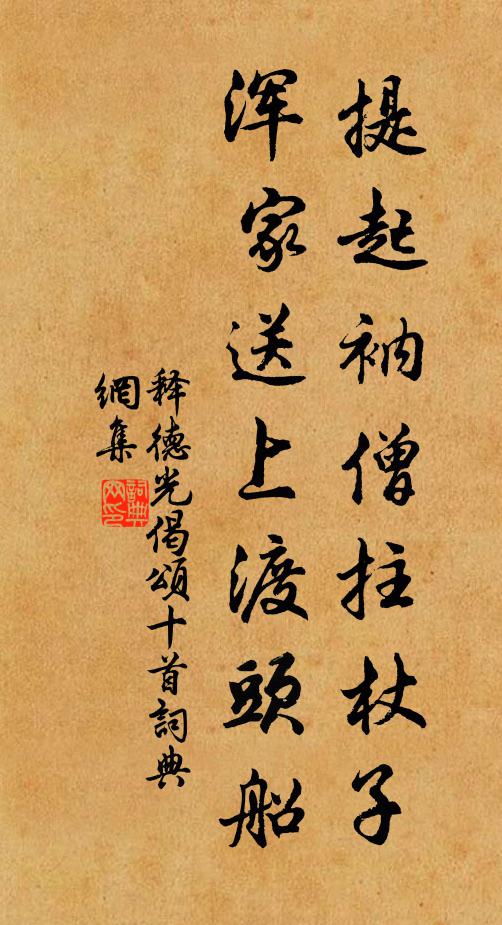 提起衲僧拄杖子
浑家送上渡頭船
释德光偈頌十首詞典
網集
詞典
网印